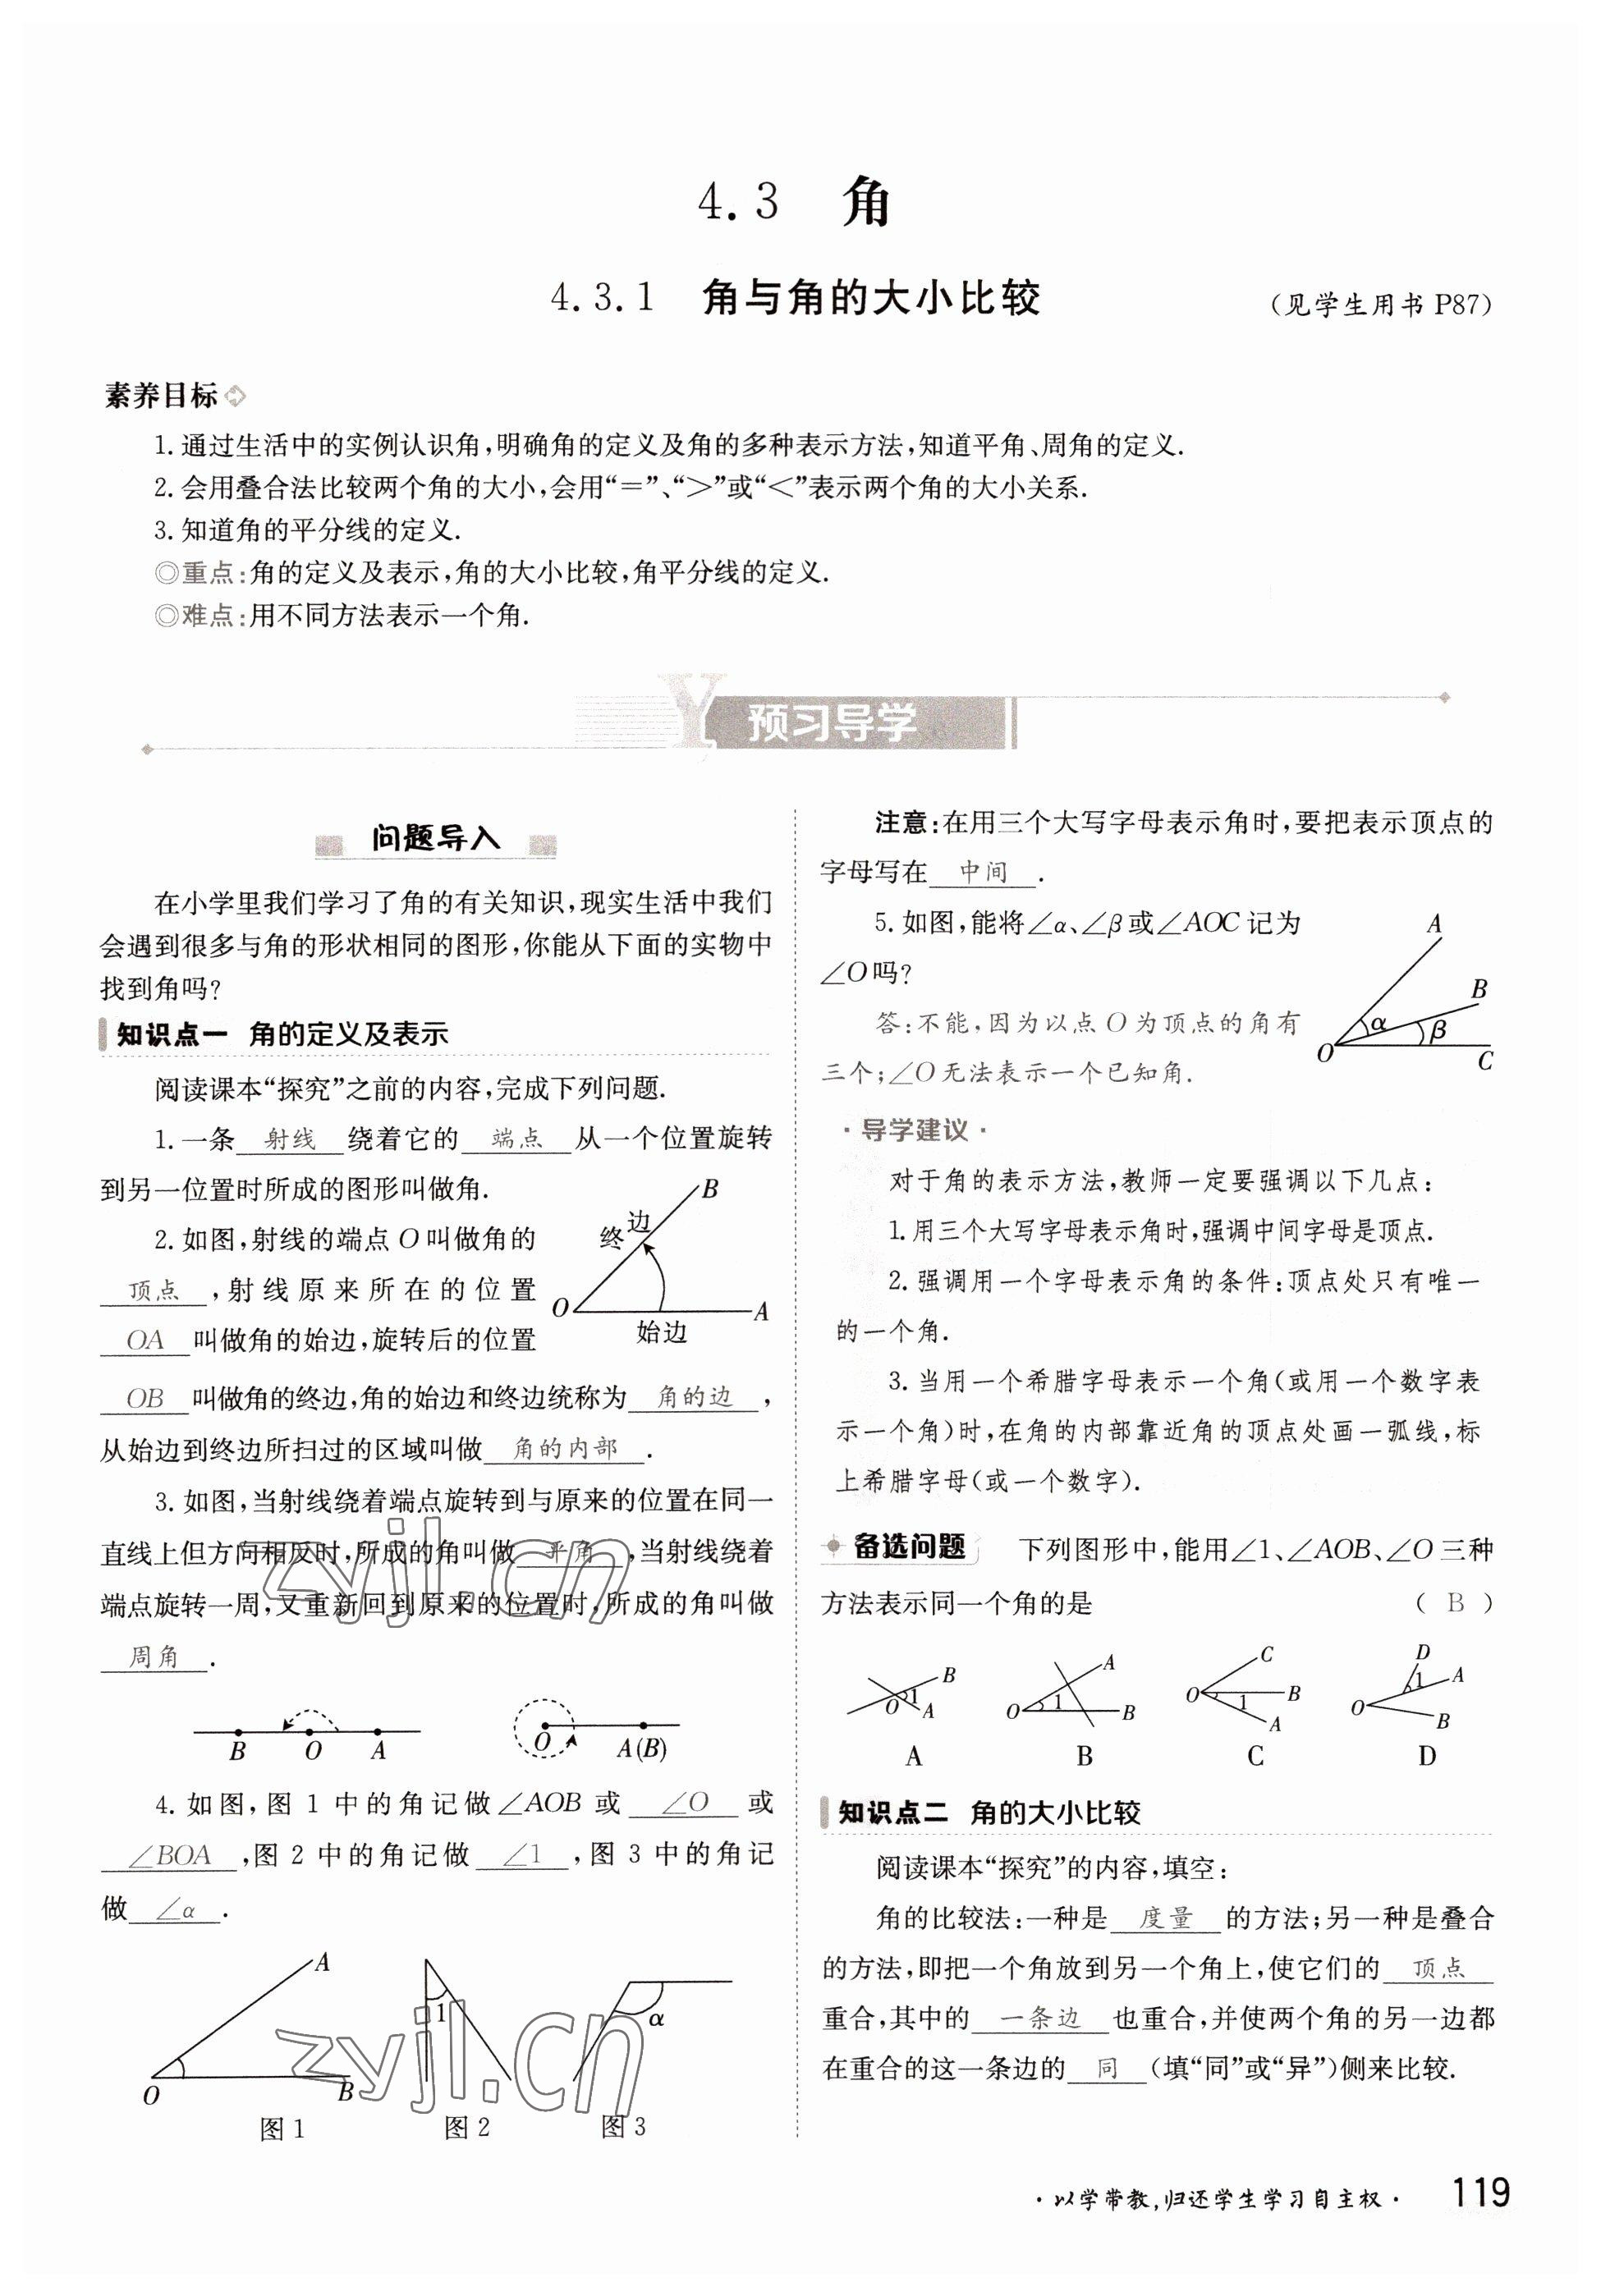 4.3 角
4.3.1 角与角的大小比较 (见学生用书 P87)
素养目标
1.通过生活中的实例认识角,明确角的定义及角的多种表示方法,知道平角、周角的定义.
2.会用叠合法比较两个角的大小,会用“=”、“>”或“<”表示两个角的大小关系.
3.知道角的平分线的定义.
◎重点:角的定义及表示,角的大小比较,角平分线的定义.
◎难点:用不同方法表示一个角.
Y 预习导学
问题导入
在小学里我们学习了角的有关知识,现实生活中我们
会遇到很多与角的形状相同的图形,你能从下面的实物中
找到角吗?
知识点一 角的定义及表示
阅读课本“探究”之前的内容,完成下列问题.
1.一条 射线 绕着它的 端点 从一个位置旋转
到另一位置时所成的图形叫做角.
2.如图,射线的端点 O 叫做角的
顶点 ,射线原来所在的位置
OA 叫做角的始边,旋转后的位置
B
终边
O
A
始边
OB 叫做角的终边,角的始边和终边统称为 角的边 ,
从始边到终边所扫过的区域叫做 角的内部 .
3.如图,当射线绕着端点旋转到与原来的位置在同一
直线上但方向相反时,所成的角叫做 平角 ,当射线绕着
端点旋转一周,又重新回到原来的位置时,所成的角叫做
周角 .
B O A O A(B)
4.如图,图 1 中的角记做∠AOB 或 ∠O 或
∠BOA ,图 2 中的角记做 ∠1 ,图 3 中的角记
做 ∠α .
A
1
α
O B
图 1 图 2 图 3
zyjl.cn
zyjl.cn
注意:在用三个大写字母表示角时,要把表示顶点的
字母写在 中间 .
5.如图,能将∠α、∠β或∠AOC 记为
∠O 吗?
答:不能,因为以点 O 为顶点的角有
三个;∠O 无法表示一个已知角.
A
B
α
β
O
C
·导学建议·
对于角的表示方法,教师一定要强调以下几点:
1.用三个大写字母表示角时,强调中间字母是顶点.
2.强调用一个字母表示角的条件:顶点处只有唯一
的一个角.
3.当用一个希腊字母表示一个角(或用一个数字表
示一个角)时,在角的内部靠近角的顶点处画一弧线,标
上希腊字母(或一个数字).
备选问题 下列图形中,能用∠1、∠AOB、∠O 三种
方法表示同一个角的是 ( B )
B O 1 A
A O 1 B
C O B 1 A
D A 1 O B
A B C D
知识点二 角的大小比较
阅读课本“探究”的内容,填空:
角的比较法:一种是 度量 的方法;另一种是叠合
的方法,即把一个角放到另一个角上,使它们的 顶点
重合,其中的 一条边 也重合,并使两个角的另一边都
在重合的这一条边的 同 (填“同”或“异”)侧来比较.
·以学带教,归还学生学习自主权· 119